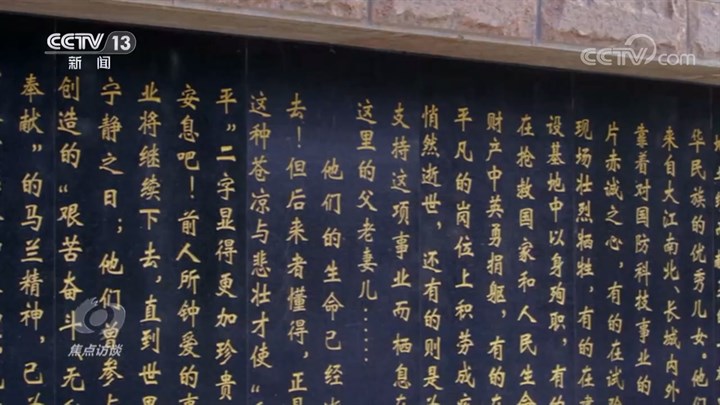 CCTV 13
新闻
CCTV.com
华民族的优秀儿女。他们
来自大江南北、长城内外
靠着对国防科技事业的
片赤诚之心，有的在试验
现场壮烈牺牲，有的在建
设基地中以身殉职，有的
在抢救国家和人民生命
财产中英勇捐躯，有的在
平凡的岗位上积劳成疾
悄然逝世，还有的则是为
支持这项事业而栖息在
这里的父老妻儿……
他们的生命已经
去！但后来者懂得，正是
这种苍凉与悲壮才使“
平”二字显得更加珍贵
安息吧！前人所钟爱的事
业将继续下去，直到世界
宁静之日；他们曾参与
创造的“艰苦奋斗、无私
奉献”的马兰精神，已为
焦点访谈